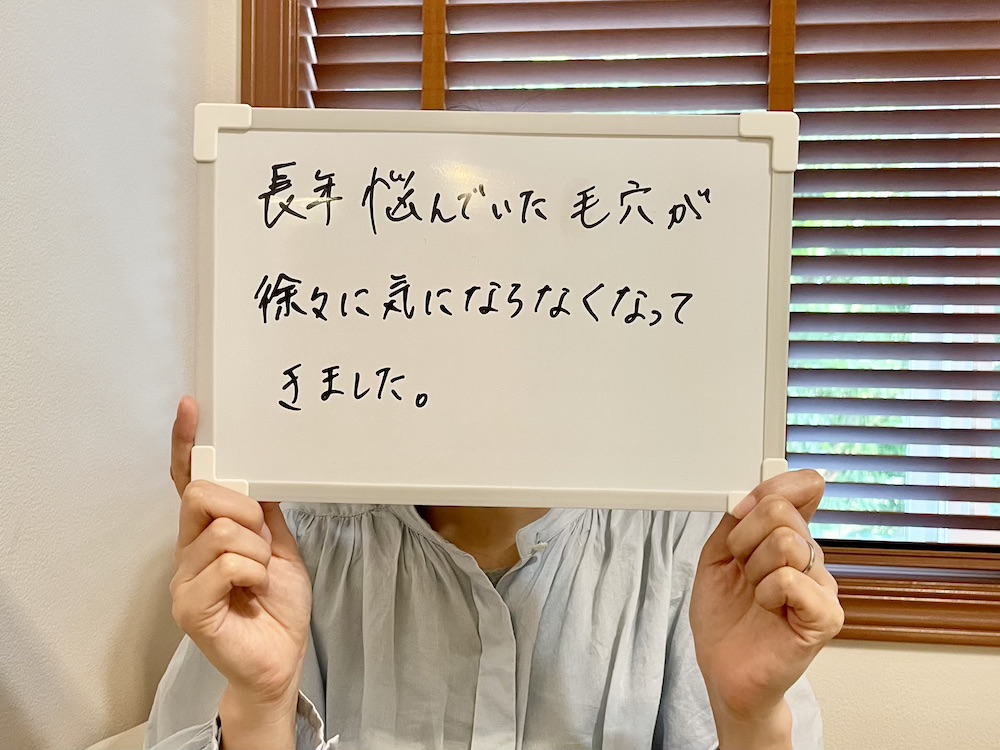 長年悩んでいた毛穴が
徐々に気にならなくなって
きました。